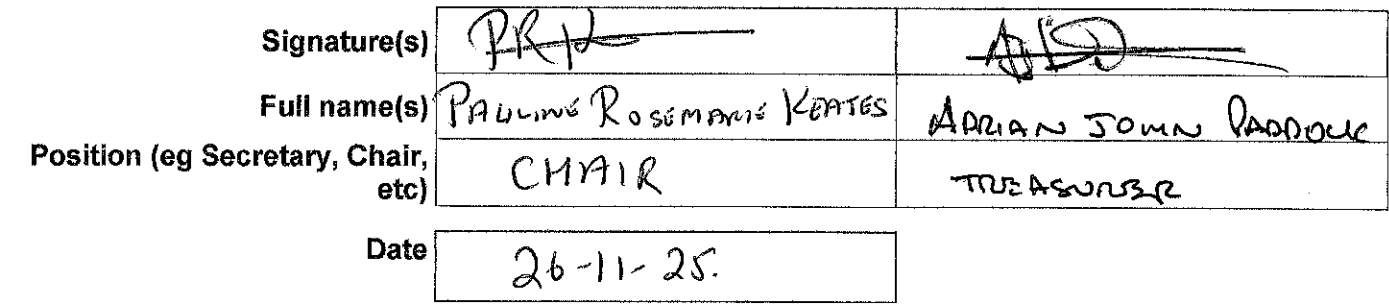 Signature(s)
Full name(s) PAULINE ROSEMARIE KEATES ADRIAN JOHN PADDOCK
Position (eg Secretary, Chair,
etc) CHAIR TREASURER
Date 26-11-25.